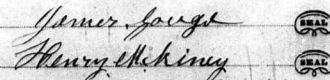 James Gouge SEAL
Henry McKiney SEAL